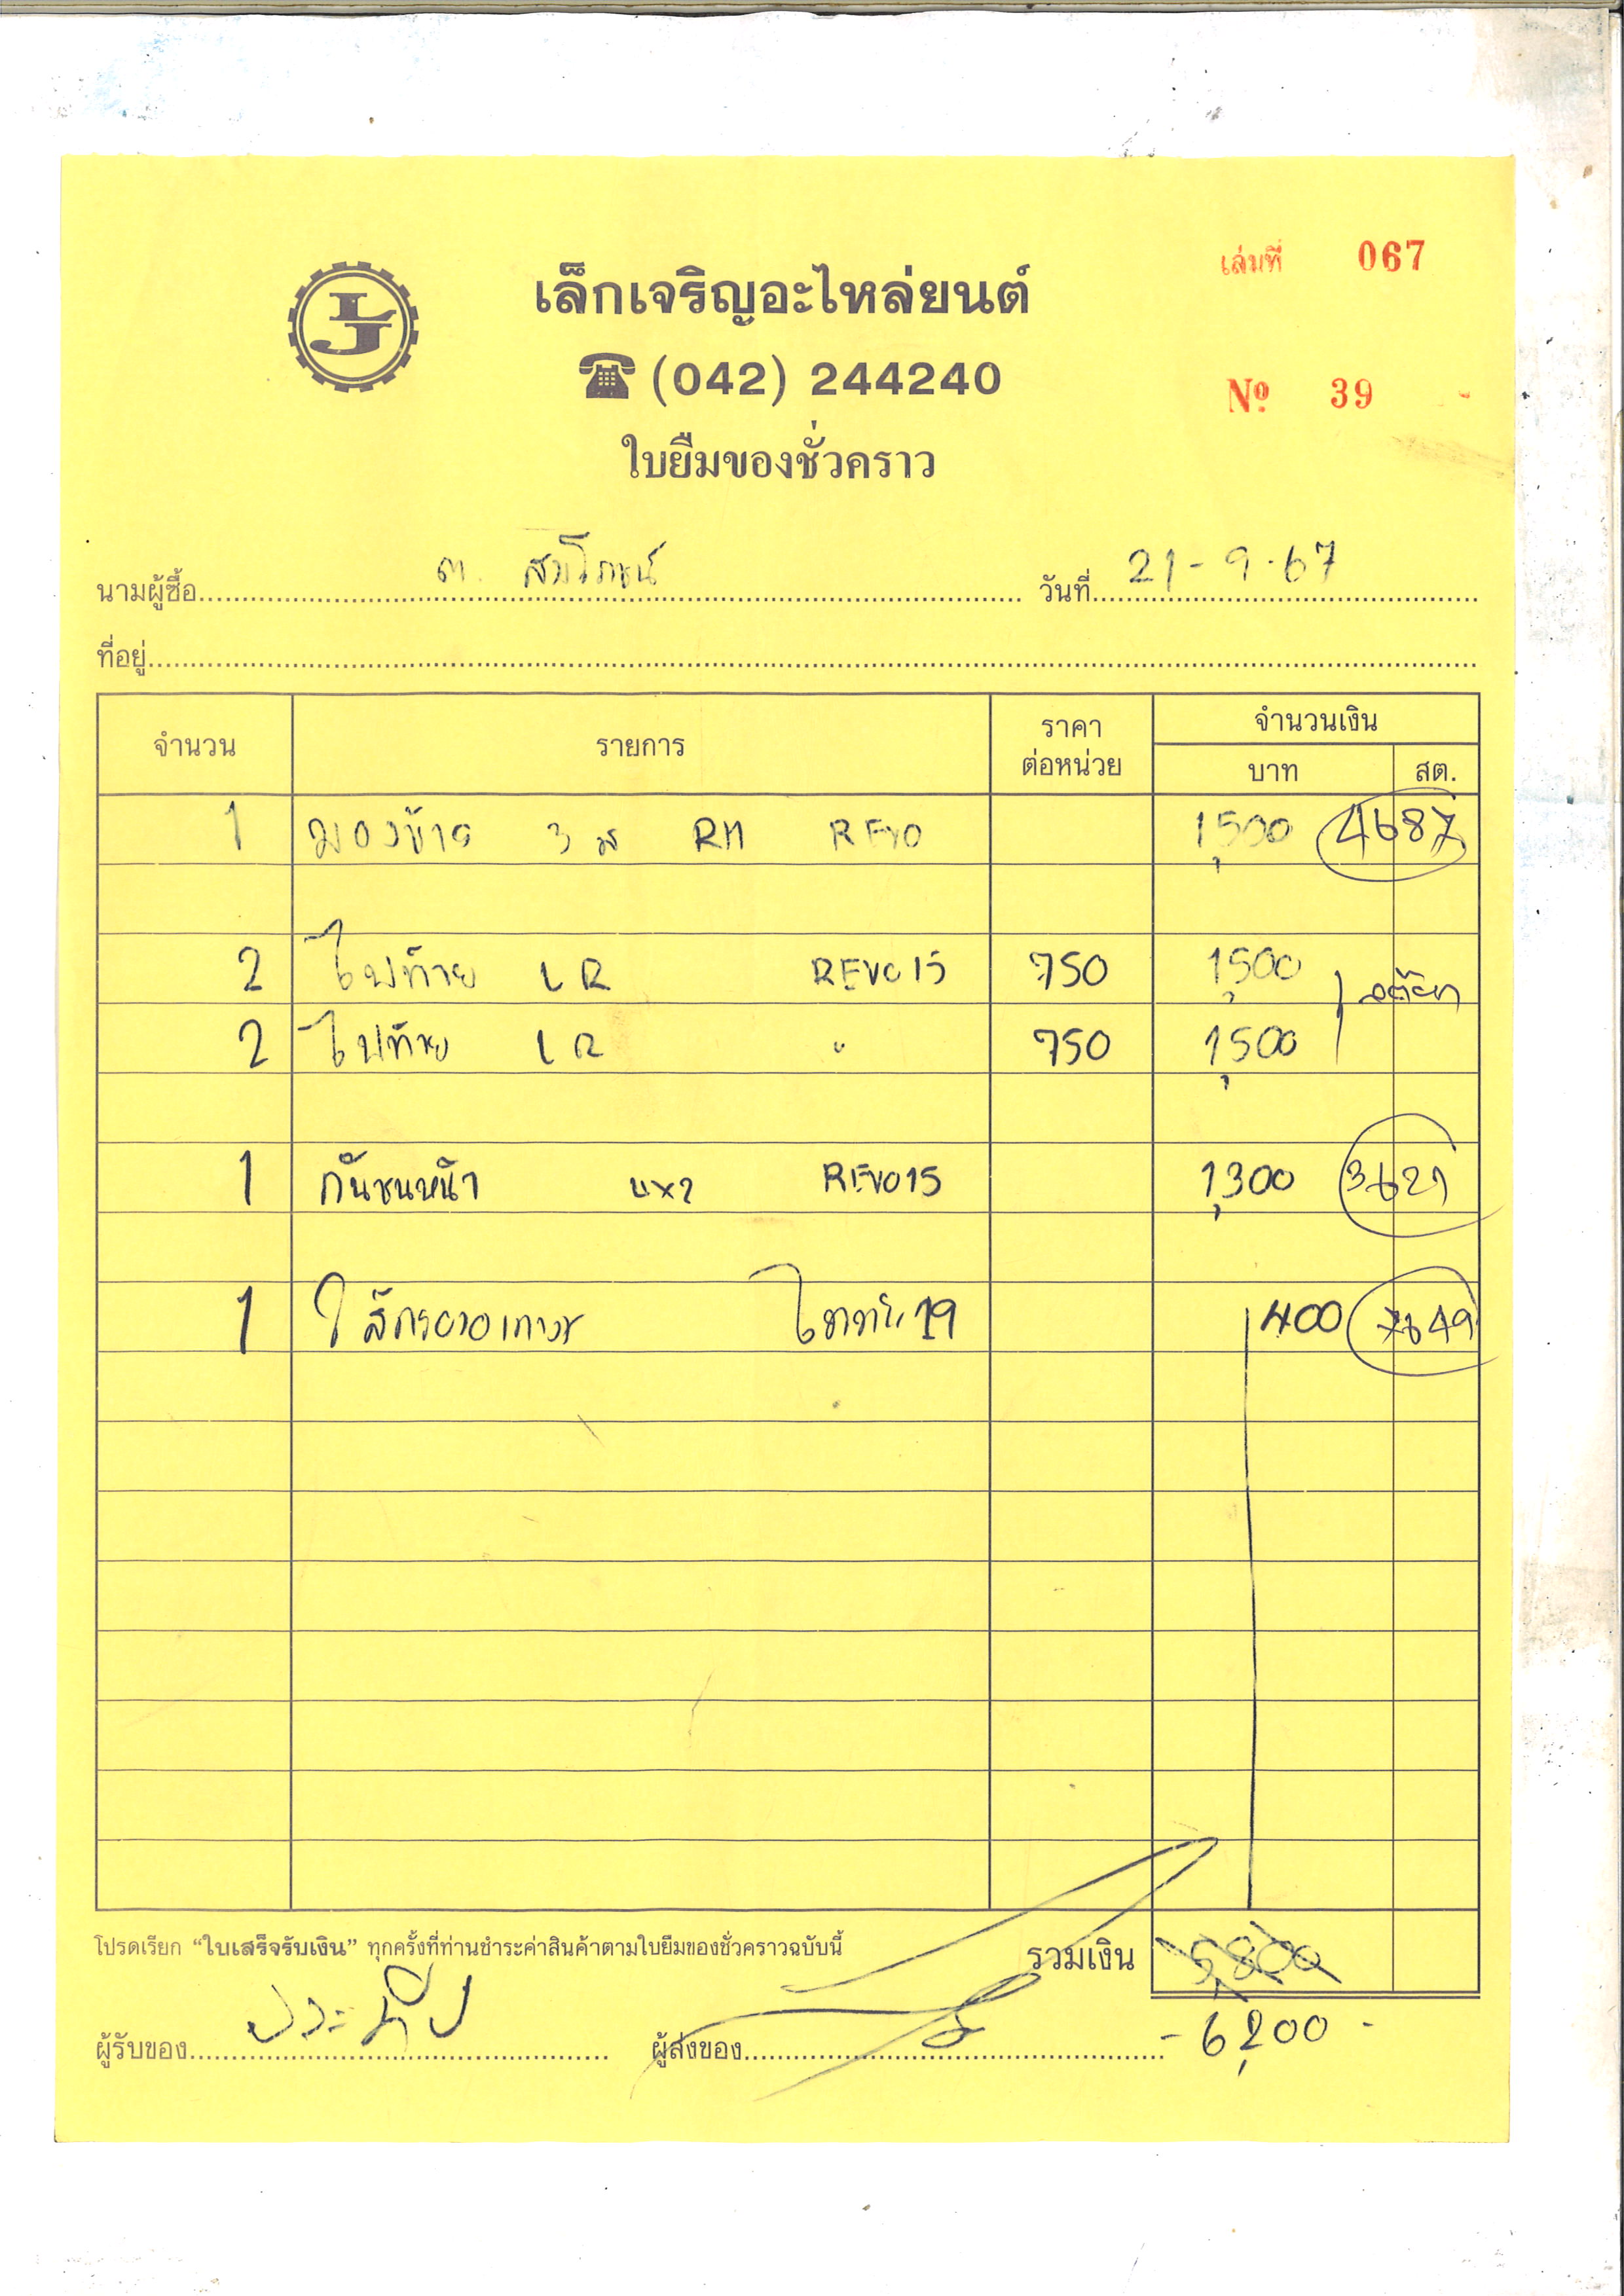 เล่มที่ 067
เล็กเจริญอะไหล่ยนต์
LJ
(042) 244240
Nº 39
ใบยืมของชั่วคราว
นามผู้ซื้อ ต. สมโภชน์ วันที่ 21-9-67
ที่อยู่
จำนวน รายการ ราคาต่อหน่วย จำนวนเงิน
บาท สต.
1 มองข้าง 3 ส RH REVO 1,500 4687
2 ไฟท้าย LR REVO 15 750 1,500
2 ไฟท้าย LR " 750 1,500
1 กันชนหน้า 4x2 REVO 15 1,300 3621
1 ไส้กรอง 19 400 7649
โปรดเรียก “ใบเสร็จรับเงิน” ทุกครั้งที่ท่านชำระค่าสินค้าตามใบยืมของชั่วคราวฉบับนี้ รวมเงิน 5,800
6,200
ผู้รับของ ประทีป ผู้ส่งของ